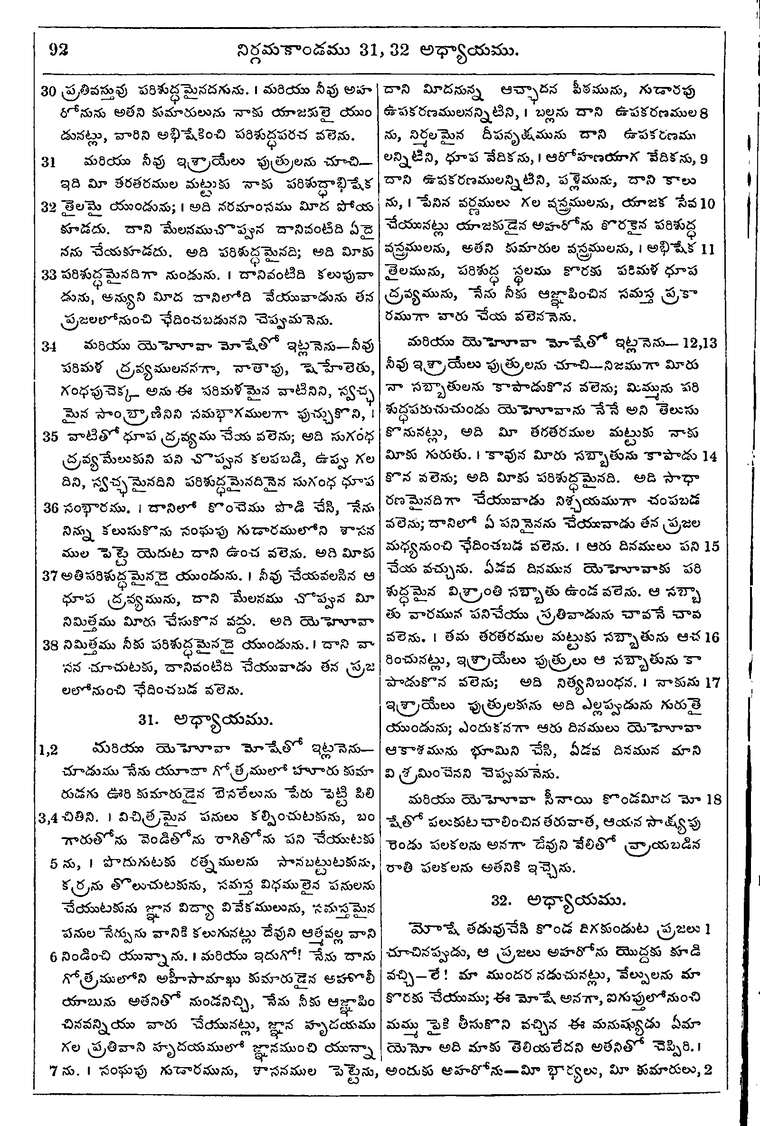 92 నిర్గమకాండము 31, 32 అధ్యాయము.
30 ప్రతివస్తువు పరిశుద్ధమైనదగును. । మరియు నీవు అహ
రోనును అతని కుమారులును నాకు యాజకులై యుం
డునట్లు, వారిని అభిషేకించి పరిశుద్ధపరచ వలెను.
31 మరియు నీవు ఇశ్రాయేలు పుత్రులను చూచి—
ఇది మీ తరతరముల మట్టుకు నాకు పరిశుద్ధాభిషేక
32 తైలమై యుండును; । అది నరమాంసము మీద పోయ
కూడదు. దాని మేలనముచొప్పున దానివంటి ఏదై
నను చేయకూడదు. అది పరిశుద్ధమైనది; అది మీకు
33 పరిశుద్ధమైనదిగా నుండును. । దానివంటిది కలుపువా
డును, అన్యుని మీద దానిలోది వేయువాడును తన
ప్రజలలోనుంచి ఛేదించబడునని చెప్పుమనెను.
34 మరియు యెహోవా మోషేతో ఇట్లనెను—నీవు
పరిమళ ద్రవ్యములనగా, నాతాపు, షెహేలెతు,
గంధపుచెక్క అను ఈ పరిమళమైన వాటినిని, స్వచ్ఛ
మైన సాంబ్రాణినిని సమభాగములగా పుచ్చుకొని, ।
35 వాటితో ధూప ద్రవ్యము చేయ వలెను; అది సుగంధ
ద్రవ్యమేలుకుని పని చొప్పున కలపబడి, ఉప్పు గల
దిని, స్వచ్ఛమైనదిని పరిశుద్ధమైనదినైన సుగంధ ధూప
36 సంభారము. । దానిలో కొంచెము పొడి చేసి, నేను
నిన్ను కలుసుకొను సంఘపు గుడారములోని శాసన
ముల పెట్టె యెదుట దాని ఉంచ వలెను. అది మీకు
37 అతిపరిశుద్ధమైనదై యుండును. । నీవు చేయవలసిన ఆ
ధూప ద్రవ్యమును, దాని మేలనము చొప్పున మీ
నిమిత్తము మీరు చేసుకొన వద్దు. అది యెహోవా
38 నిమిత్తము నీకు పరిశుద్ధమైనదై యుండును. । దాని వా
సన చూచుటకు, దానివంటిది చేయువాడు తన ప్రజ
లలోనుంచి ఛేదించబడ వలెను.
31. అధ్యాయము.
1,2 మరియు యెహోవా మోషేతో ఇట్లనెను—
చూడుము నేను యూదా గోత్రములో హూరు కుమా
రుడగు ఊరి కుమారుడైన బెసలేలును పేరు పెట్టి పిలి
3,4 చితిని. । విచిత్రమైన పనులు కల్పించుటకును, బం
గారుతోను వెండితోను రాగితోను పని చేయుటకు
5 ను, । పొదుగుటకు రత్నములను సానబట్టుటకును,
కర్రను తొలుచుటకును, సమస్త విధములైన పనులను
చేయుటకును జ్ఞాన విద్యా వివేకములును, సమస్తమైన
పనుల నేర్పును వానికి కలుగునట్లు దేవుని ఆత్మవల్ల వాని
6 నిండించి యున్నాను. । మరియు ఇదుగో! నేను దాను
గోత్రములోని అహీసామాఖు కుమారుడైన ఆహొలీ
యాబును అతనితో నుండనిచ్చి, నేను నీకు ఆజ్ఞాపిం
చినవన్నియు వారు చేయునట్లు, జ్ఞాన హృదయము
గల ప్రతివాని హృదయములో జ్ఞానముంచి యున్నా
7 ను. । సంఘపు గుడారమును, శాసనముల పెట్టెను,
దాని మీదనున్న ఆచ్ఛాదన పీఠమును, గుడారపు
ఉపకరణములనన్నిటిని, । బల్లను దాని ఉపకరణముల 8
ను, నిర్మలమైన దీపవృక్షమును దాని ఉపకరణము
లన్నిటిని, ధూప వేదికను, । ఆరోహణయాగ వేదికను, 9
దాని ఉపకరణములన్నిటిని, పళ్లెమును, దాని కాలు
ను, । పేనిన వర్ణములు గల వస్త్రములను, యాజక సేవ 10
చేయునట్లు యాజకుడైన అహరోను కొరకైన పరిశుద్ధ
వస్త్రములను, అతని కుమారుల వస్త్రములను, । అభిషేక 11
తైలమును, పరిశుద్ధ స్థలము కొరకు పరిమళ ధూప
ద్రవ్యమును, నేను నీకు ఆజ్ఞాపించిన సమస్త ప్రకా
రముగా వారు చేయ వలెననెను.
మరియు యెహోవా మోషేతో ఇట్లనెను— 12,13
నీవు ఇశ్రాయేలు పుత్రులను చూచి—నిజముగా మీరు
నా సబ్బాతులను కాపాడుకొన వలెను; మిమ్మును పరి
శుద్ధపరుచుచుండు యెహోవాను నేనే అని తెలుసు
కొనునట్లు, అది మీ తరతరముల మట్టుకు నాకు
మీకు గురుతు. । కావున మీరు సబ్బాతును కాపాడు 14
కొన వలెను; అది మీకు పరిశుద్ధమైనది. అది సాధా
రణమైనదిగా చేయువాడు నిశ్చయముగా చంపబడ
వలెను; దానిలో ఏ పనినైనను చేయువాడు తన ప్రజల
మధ్యనుంచి ఛేదించబడ వలెను. । ఆరు దినములు పని 15
చేయ వచ్చును. ఏడవ దినమున యెహోవాకు పరి
శుద్ధమైన విశ్రాంతి సబ్బాతు ఉండ వలెను. ఆ సబ్బా
తు వారమున పనిచేయు ప్రతివాడును చావనే చావ
వలెను. । తమ తరతరముల మట్టుకు సబ్బాతును ఆచ 16
రించునట్లు, ఇశ్రాయేలు పుత్రులు ఆ సబ్బాతును కా
పాడుకొన వలెను; అది నిత్యనిబంధన. । నాకును 17
ఇశ్రాయేలు పుత్రులకును అది ఎల్లప్పుడును గురుతై
యుండును; ఎందుకనగా ఆరు దినములు యెహోవా
ఆకాశమును భూమిని చేసి, ఏడవ దినమున మాని
విశ్రమించెనని చెప్పుమనెను.
మరియు యెహోవా సీనాయి కొండమీద మో 18
షేతో పలుకుట చాలించిన తరువాత, ఆయన సాక్ష్యపు
రెండు పలకలను అనగా దేవుని వేలితో వ్రాయబడిన
రాతి పలకలను అతనికి ఇచ్చెను.
32. అధ్యాయము.
మోషే తడువుచేసి కొండ దిగకుండుట ప్రజలు 1
చూచినప్పుడు, ఆ ప్రజలు అహరోను యొద్దకు కూడి
వచ్చి—లే! మా ముందర నడుచునట్లు, వేల్పులను మా
కొరకు చేయుము; ఈ మోషే అనగా, ఐగుప్తులోనుంచి
మమ్ము పైకి తీసుకొని వచ్చిన ఈ మనుష్యుడు ఏమా
యెనో అది మాకు తెలియలేదని అతనితో చెప్పిరి. ।
అందుకు అహరోను—మీ భార్యలు, మీ కుమారులు, 2